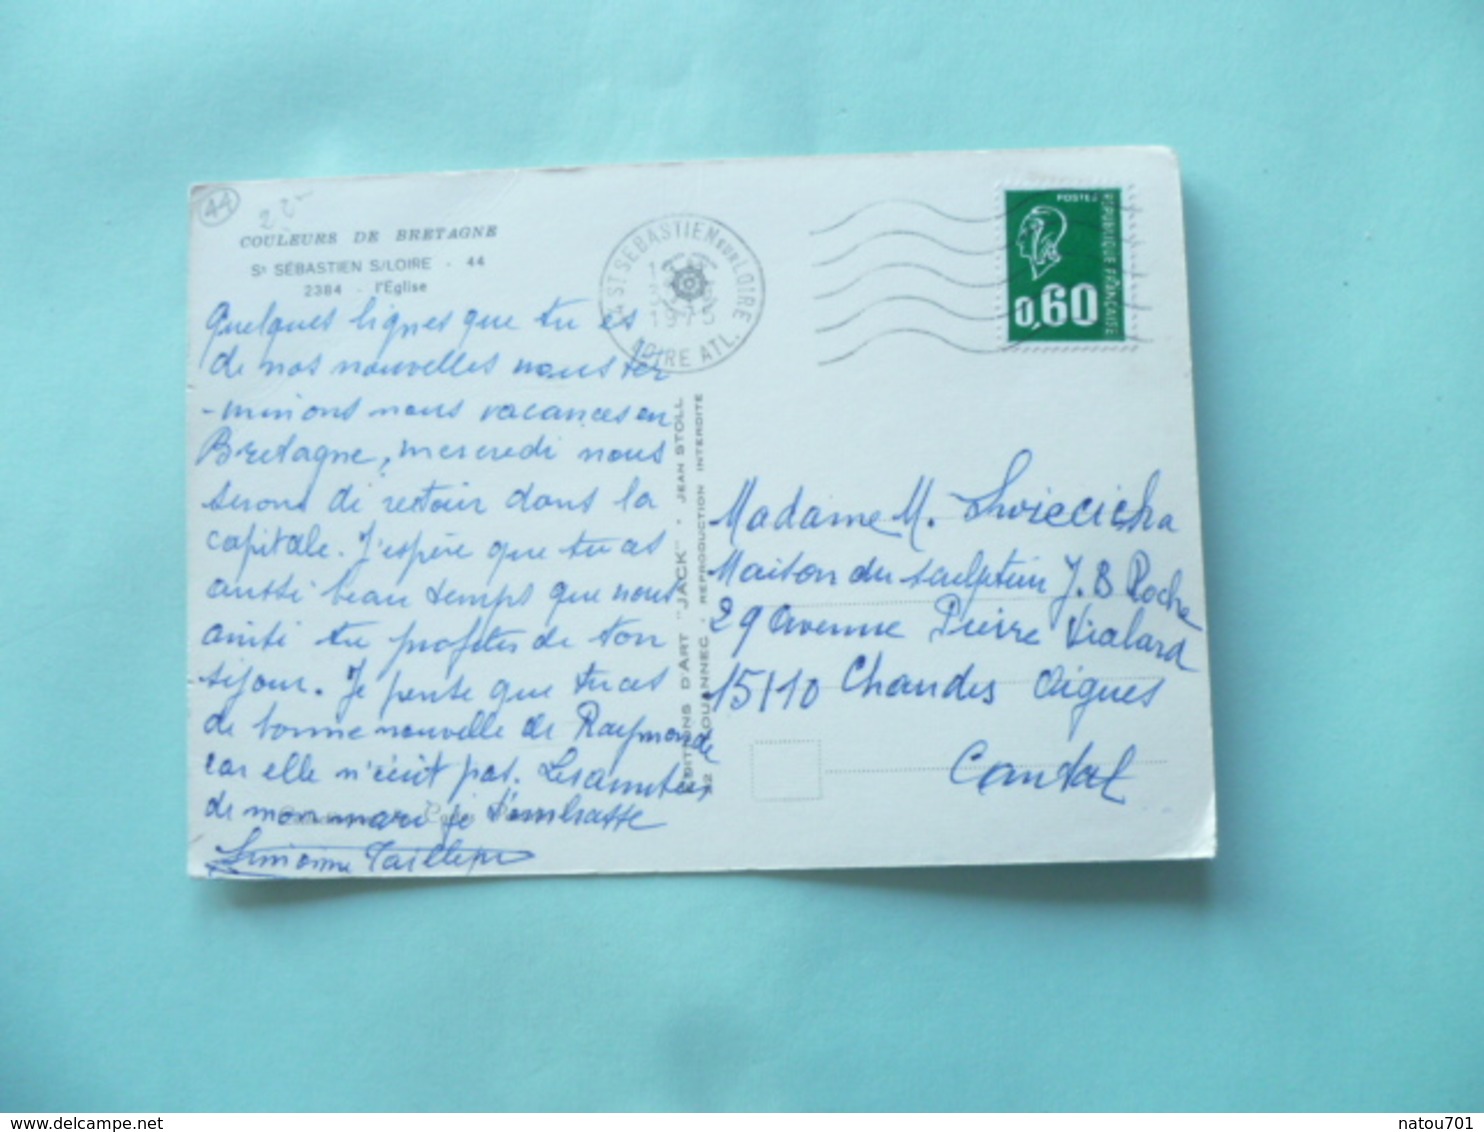 44
COULEURS DE BRETAGNE
St SÉBASTIEN S/LOIRE - 44
2384 - l'Eglise
Quelques lignes que tu es
de nos nouvelles nous ter
-minions nous vacances en
Bretagne, mercredi nous
serons di retour dans la
capitale. J'espère que tu as
aussi beau temps que nous
ainsi tu profites de ton
séjour. Je pense que tu as
de bonne nouvelle de Raymonde
car elle n'écrit pas. Les amitiés
de mon mari je t'embrasse
Simonne
ST SEBASTIEN SUR LOIRE
LOIRE ATL.
POSTES
REPUBLIQUE FRANÇAISE
0,60
EDITIONS D'ART "JACK" - JEAN STOLL
LOUANNEC - REPRODUCTION INTERDITE
Madame M.
Maison du sculpteur J. B Roche
29 avenue Pierre Vialard
15110 Chaudes Aigues
Cantal
natou701